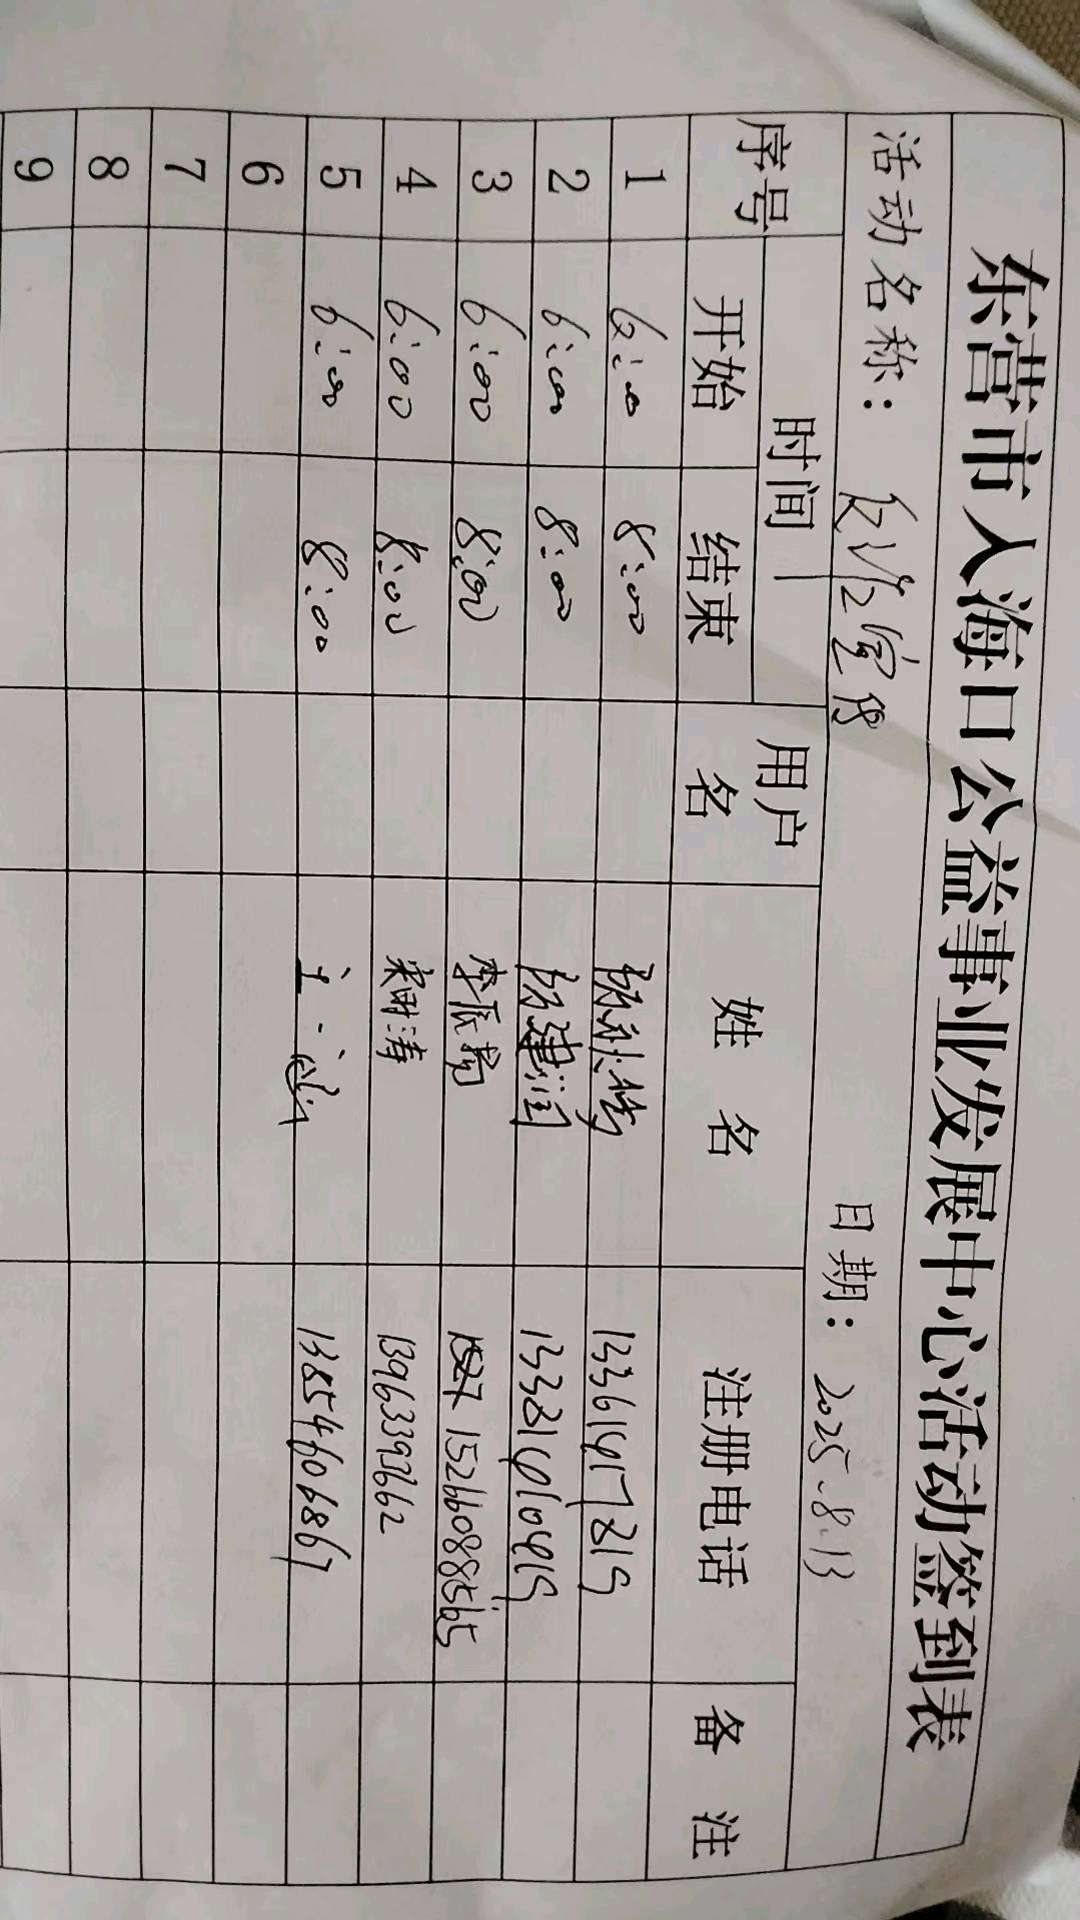 东营市入海口公益事业发展中心活动签到表
活动名称： 宣传 日期：2025.8.13
序号 时间 用户名 姓名 注册电话 备注
开始 结束
1 6:00 8:00 13361491 7819
2 6:00 8:00 张建国
3 6:00 8:00 李辰菊 15266088565
4 6:00 8:00 宋明涛 13963397662
5 6:00 8:00 13854606867
6
7
8
9